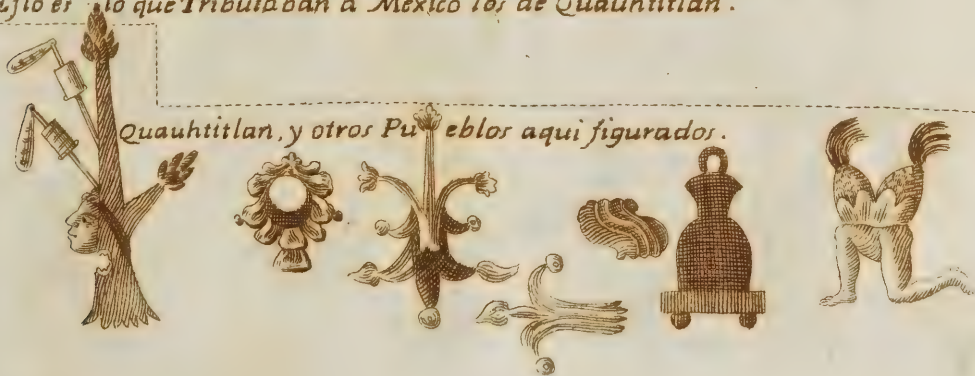 Esto es lo que Tributaban a Mexico los de Quauhtitlan.
Quauhtitlan, y otros Pueblos aqui figurados.